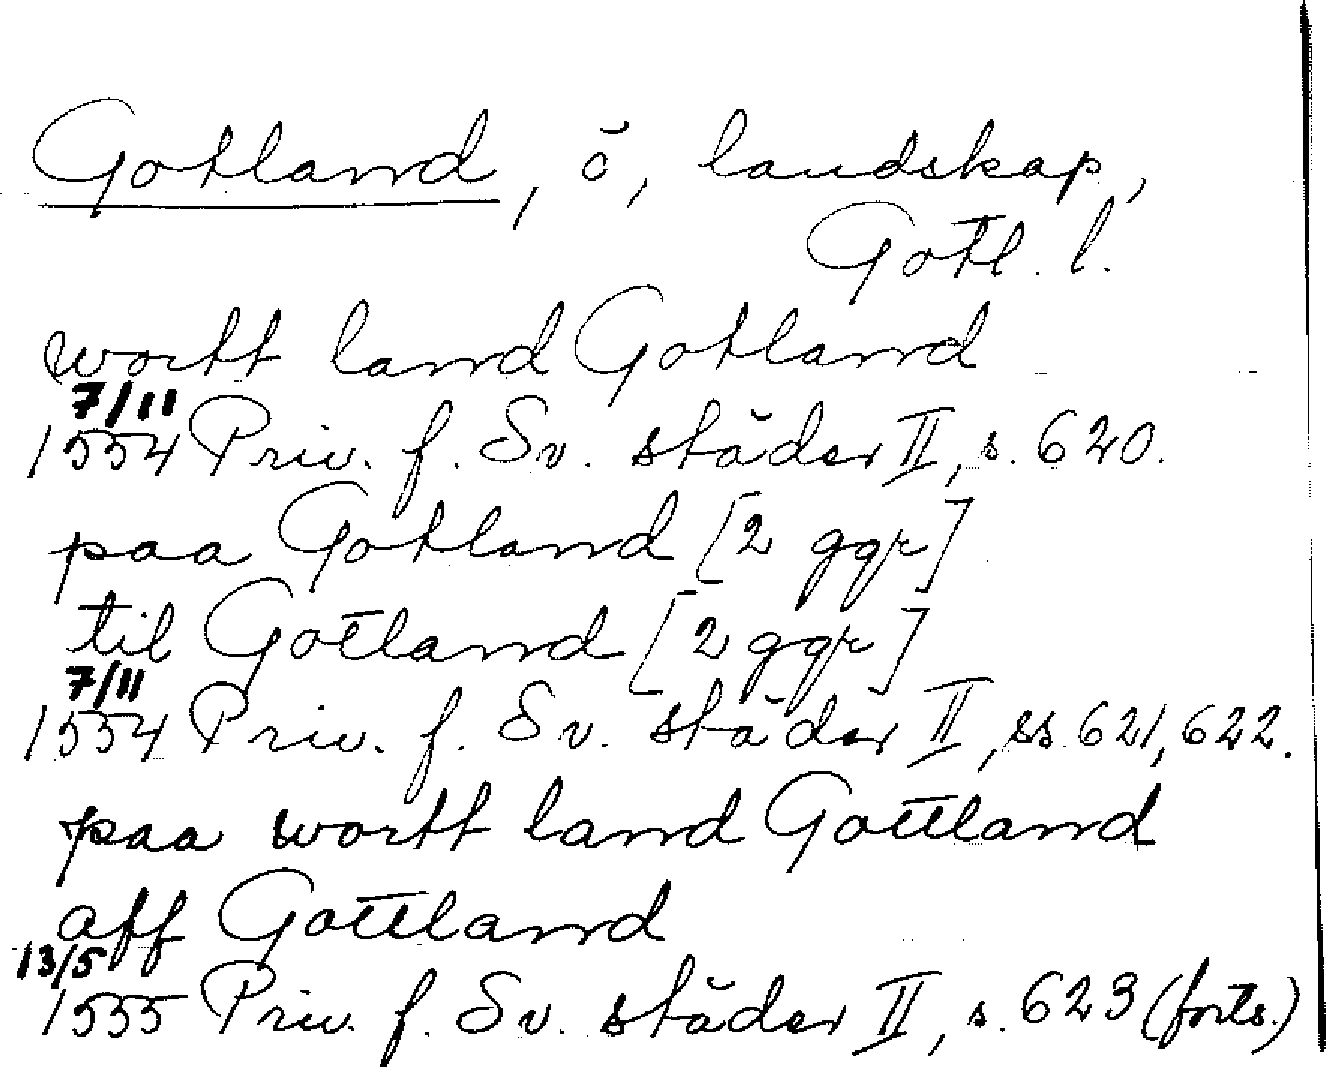 Gotland, ö, landskap,
Gotl. l.
wortt land Gotland
7/11
1554 Priv. f. Sv. städer II, s. 620.
paa Gotland [2 ggr]
til Gotland [2 ggr]
7/11
1554 Priv. f. Sv. städer II, ss. 621, 622.
paa wortt land Gottland
aff Gottland
13/5
1555 Priv. f. Sv. städer II, s. 623 (forts.)